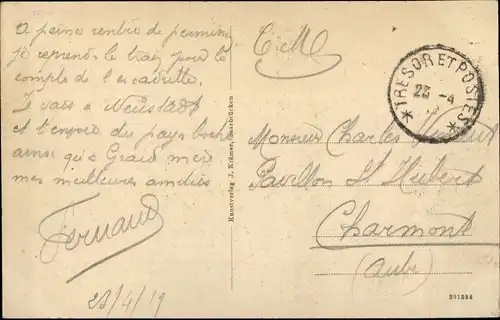 A peine rentré de permission
je reprends le train pour le
compte de l'escadrille.
Je vais à Neustadt
et t'envoie du pays boche
ainsi qu'à Grand'mère
mes meilleures amitiés
Fernand
23/4/19
Kunstverlag J. Krämer, Saarbrücken
C.M.
* TRESOR ET POSTES *
23 -4
Monsieur Charles
Pavillon St Hubert
Charmont
(Aube)
201584